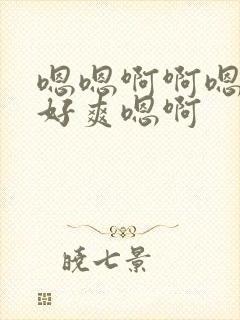 嗯嗯啊啊嗯
好爽嗯啊
晓七景